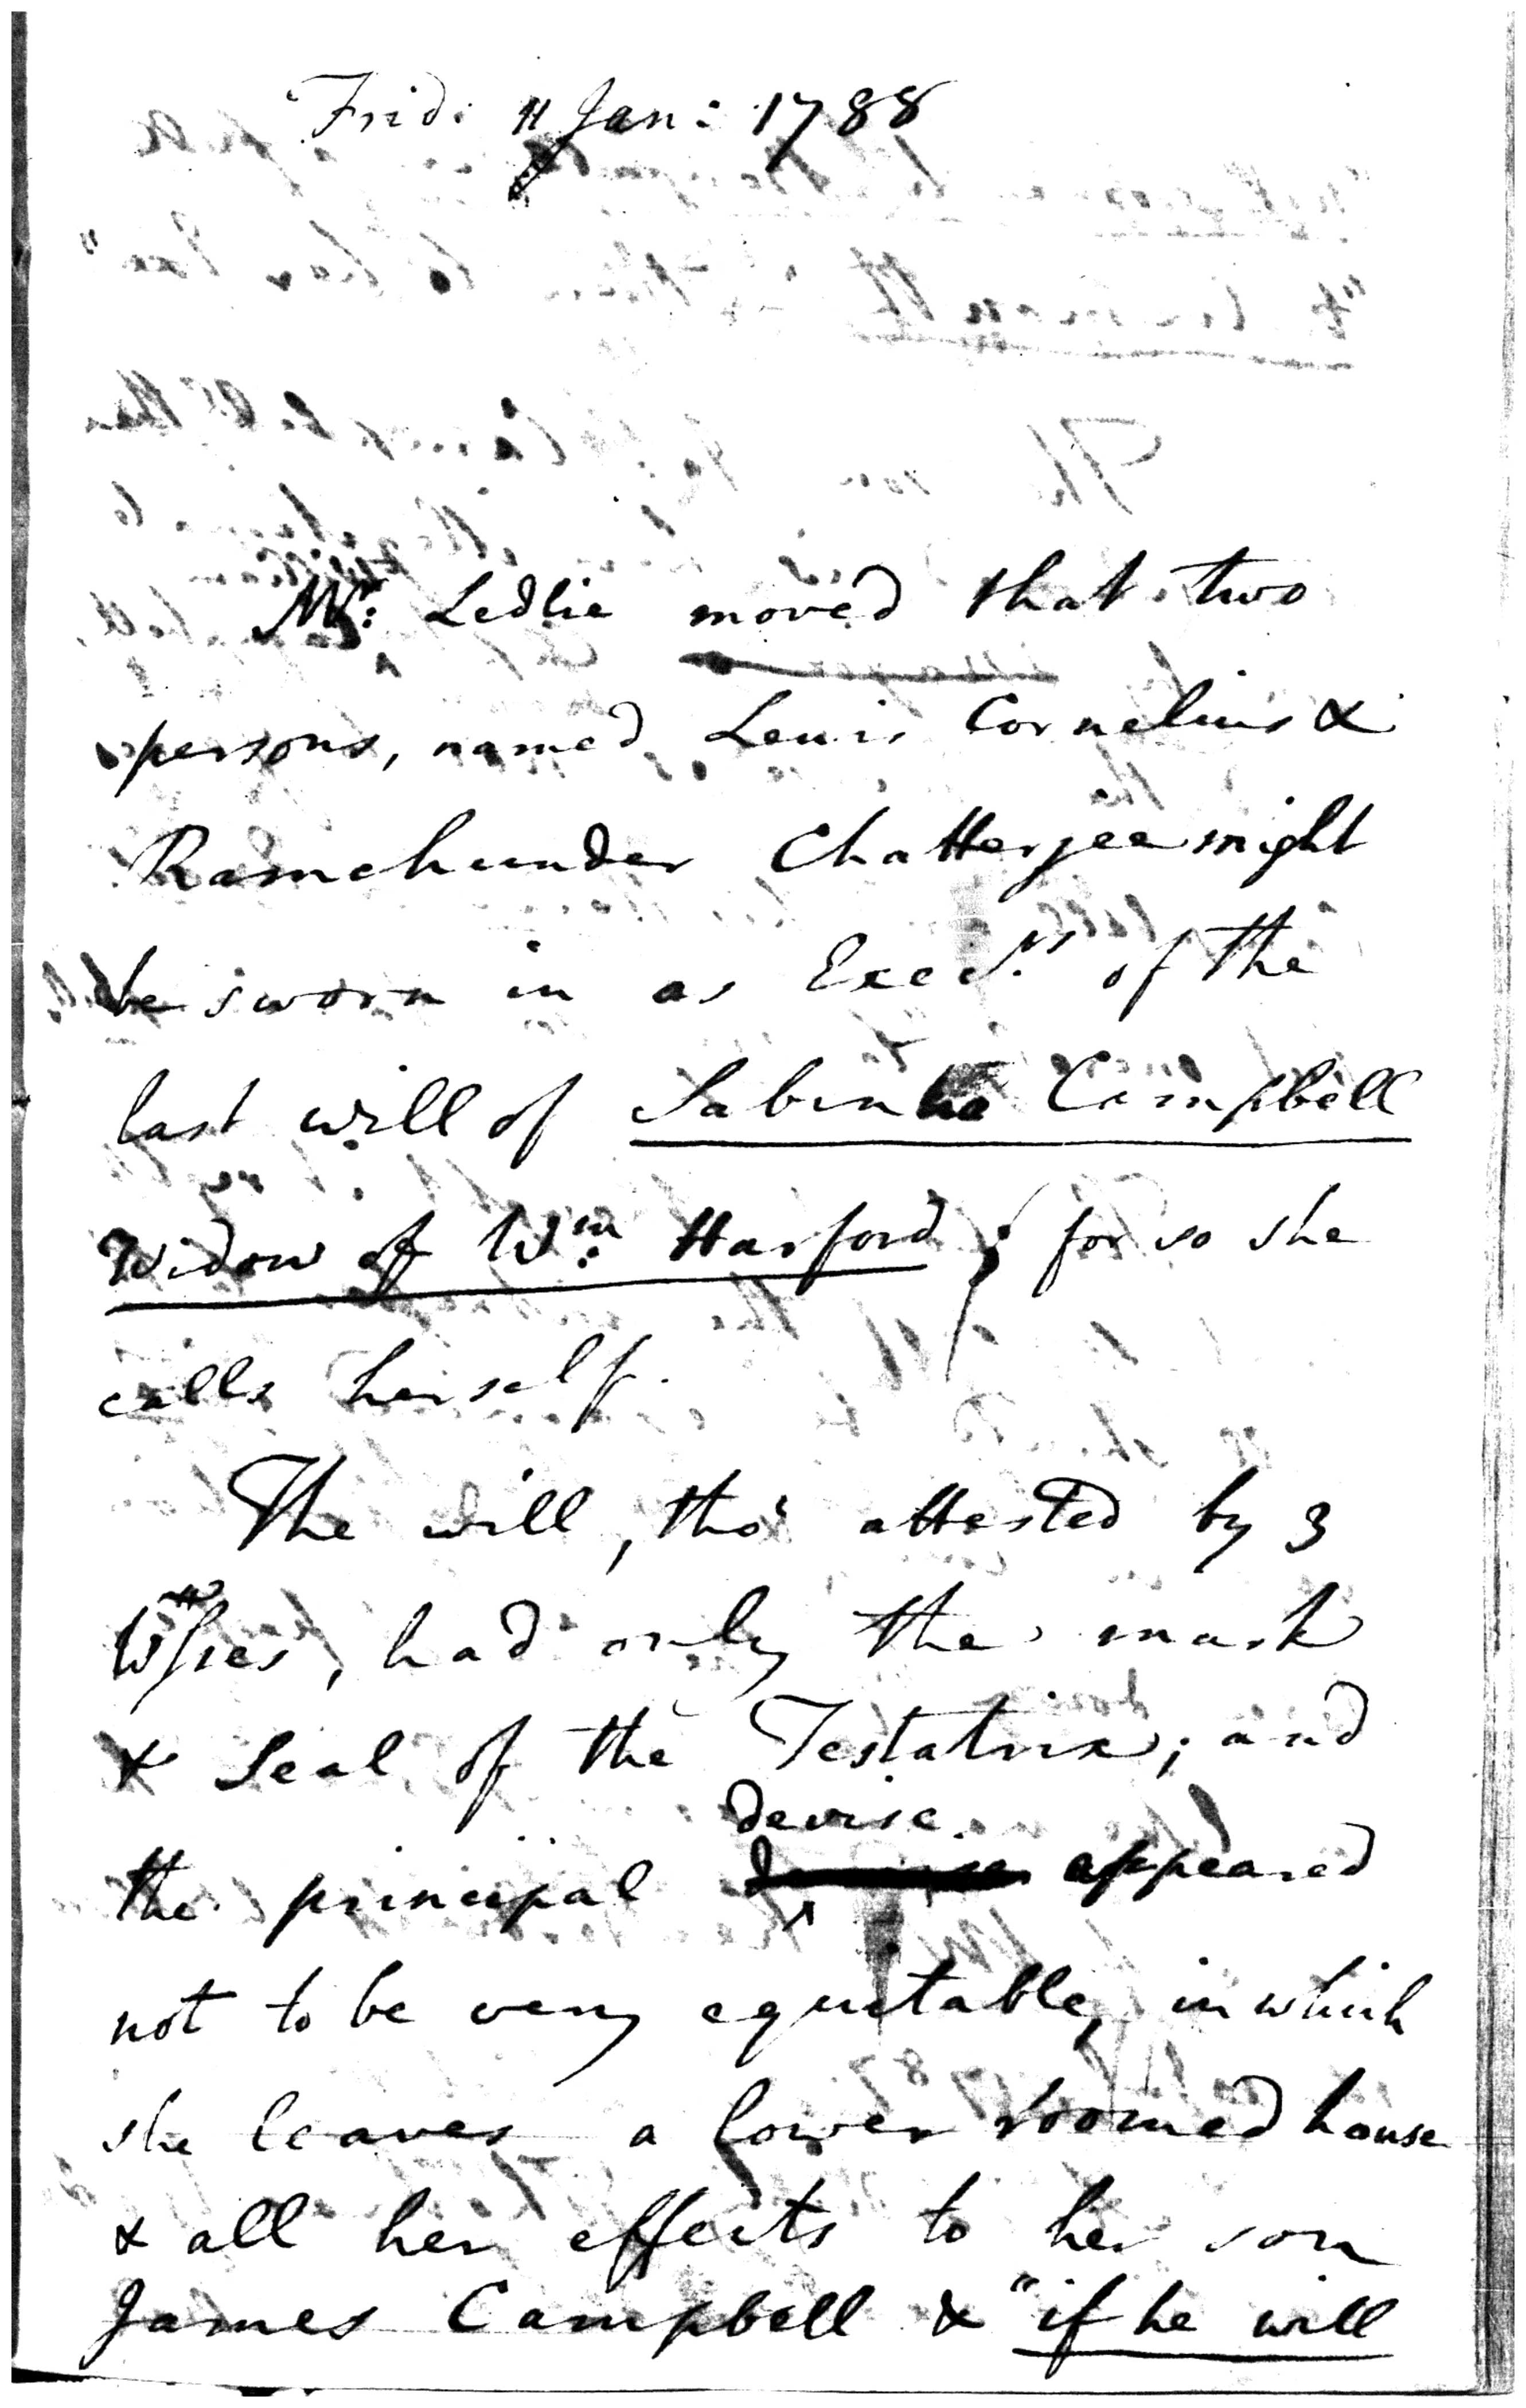 Frid: 11 Jan: 1788
Mr: Ledlie moved that two
persons, named Lewis Cornelius &
Ramchunder Chatterjee might
be sworn in as Exec.rs of the
last will of Sabinha Campbell
Widow of Wm: Harford; for so she
calls herself.
The will, tho' attested by 3
Wsses, had only the mark
& Seal of the Testatrix; and
devise
the principal appeared
not to be very equitable, in which
she leaves a lower roomed house
& all her effects to her son
James Campbell & "if he will